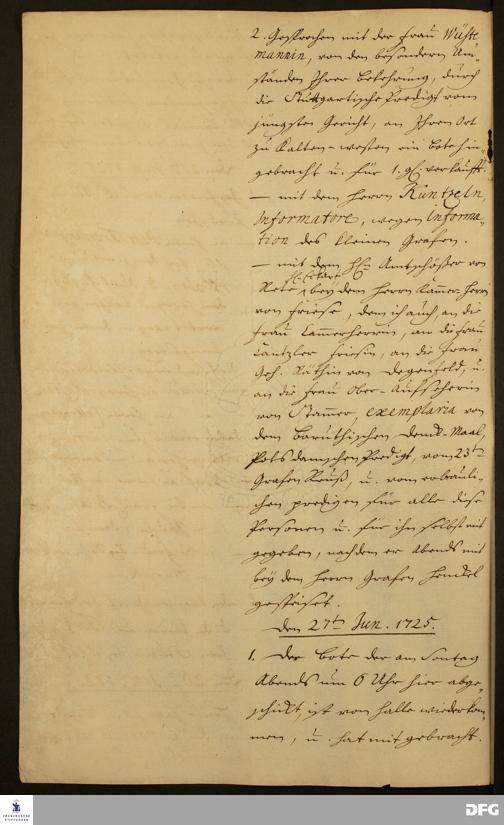 2. Gesprochen mit der Frau Wüste
mannin, von den besondern Um-
ständen Ihrer Bekehrung, durch
die Stuttgartische Predigt vom
jüngsten Gericht, an Ihren Ort
zu Kalten-westen ein Bote hin-
gebracht u. für 1. gl. verkaufft.
— mit dem Herrn Kuntzeln,
Informatore, wegen Informa-
tion des kleinen Grafen.
— mit dem Hln Amtschößer von
bey dem Herrn Kammer-Herrn
von Friese, dem ich auch, an die
Frau Cammerherrin, an die Frau
Cantzler Friesin, an die Frau
Geh. Räthin von Degenfeld, u.
an die Frau Ober-Aufseherin
von Stammer, exemplaria von
dem Baruthischen Denck-Maal,
Potsdamschen Predigt, vom 23ten
Grafen Reuß, u. vom erbauli-
chen predigen für alle diese
Personen u. für ihn selbst mit
gegeben, nachdem er Abends mit
bey dem Herrn Grafen Henckel
gespeiset.
Den 27ten Jun. 1725.
1. Der Bote der am Sontag
Abends um 6 Uhr hier abge-
schickt, ist von Halle wiederkom-
men, u. hat mitgebracht.
FRANCKESCHE
STIFTUNGEN
DFG